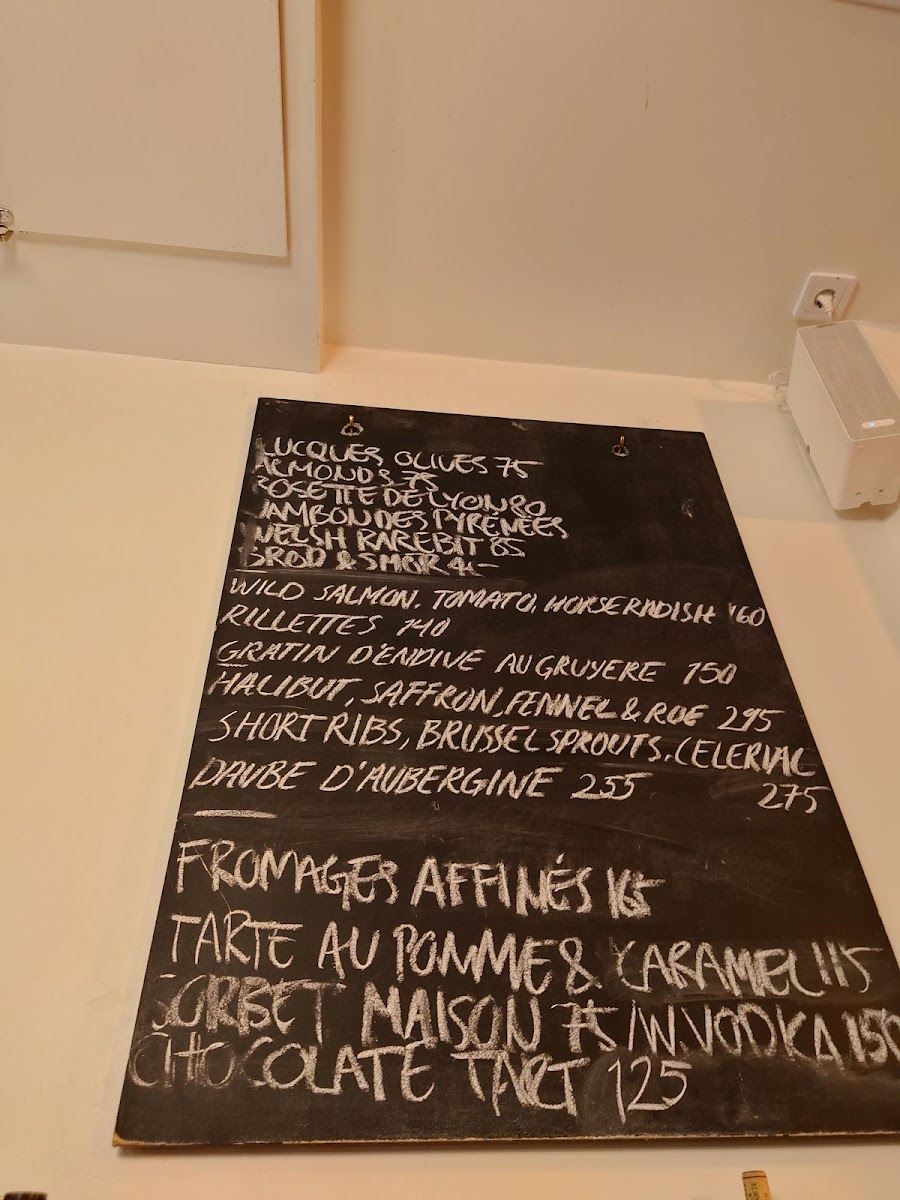 LUCQUES OLIVES 75
ALMONDS 75
ROSETTE DE LYON 80
JAMBON DES PYRENÉES
WELSH RAREBIT 85
BRØD & SMØR 4,-
WILD SALMON, TOMATO, HORSERADISH 160
RILLETTES 140
GRATIN D'ENDIVE AU GRUYERE 150
HALIBUT, SAFFRON, FENNEL & ROE 295
SHORT RIBS, BRUSSEL SPROUTS, CELERIAC
275
DAUBE D'AUBERGINE 255
FROMAGES AFFINÉS 165
TARTE AU POMME & CARAMEL 115
SORBET MAISON 75 /W. VODKA 150
CHOCOLATE TART 125